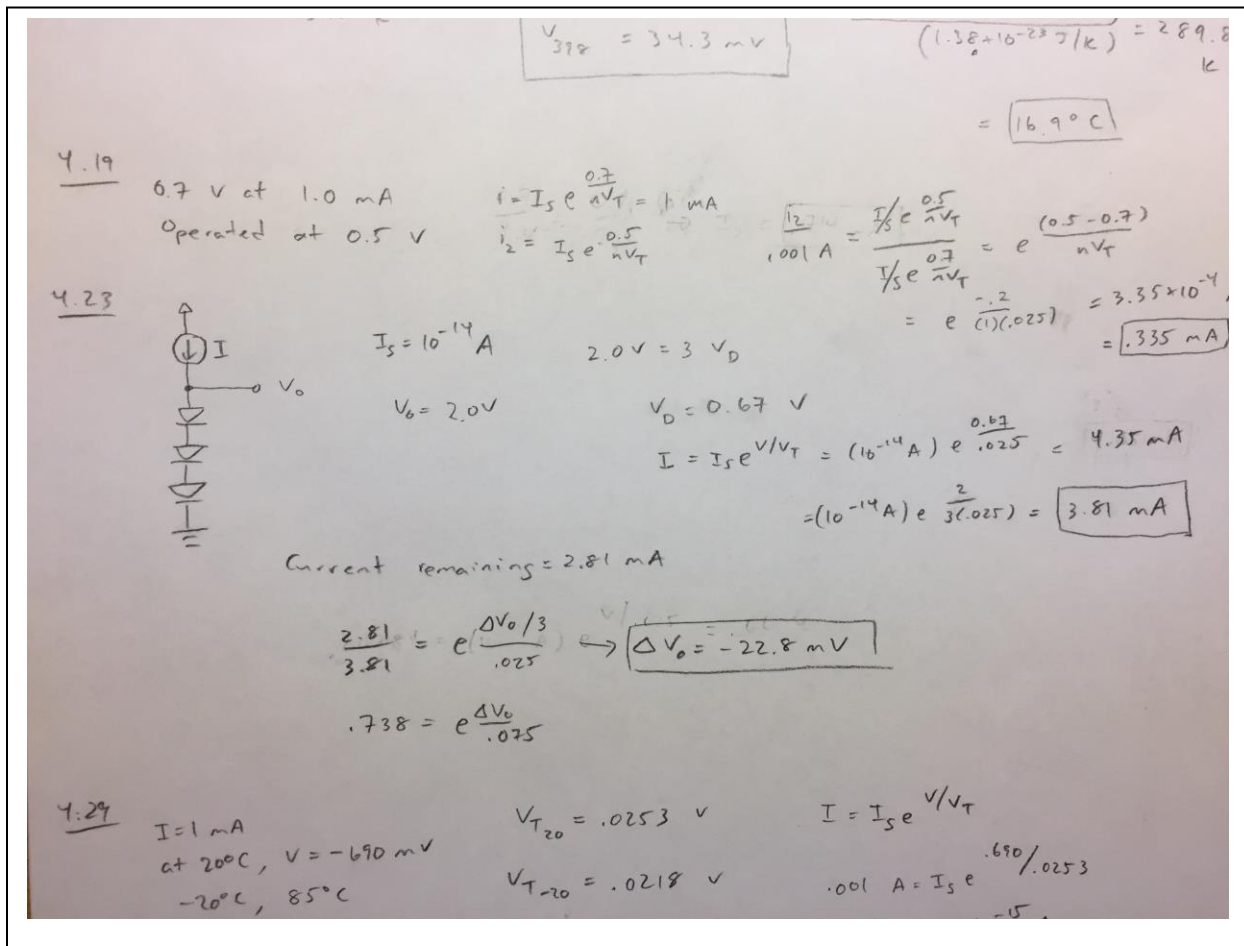 V₃₉₈ = 34.3 mV
(1.38*10⁻²³ J/K) = 289.8
K
= 16.9° C
4.19
0.7 V at 1.0 mA
i = I_S e^(0.7/nV_T) = 1 mA
Operated at 0.5 V
i₂ = I_S e^(0.5/nV_T)
i₂/.001 A = I_S e^(0.5/nV_T) / I_S e^(0.7/nV_T) = e^((0.5-0.7)/nV_T)
= e^(-.2/(1)(.025)) = 3.35×10⁻⁴
= .335 mA
4.23
I
I_S = 10⁻¹⁴ A
2.0V = 3 V_D
V₀
V₀ = 2.0V
V_D = 0.67 V
I = I_S e^(V/V_T) = (10⁻¹⁴ A) e^(0.67/.025) = 4.35 mA
= (10⁻¹⁴ A) e^(2/3(.025)) = 3.81 mA
Current remaining = 2.81 mA
2.81/3.81 = e^((ΔV₀/3)/.025) → ΔV₀ = -22.8 mV
.738 = e^(ΔV₀/.075)
4.29
I = 1 mA
at 20°C, V = -690 mV
-20°C, 85°C
V_T₂₀ = .0253 V
V_T₋₂₀ = .0218 V
I = I_S e^(V/V_T)
.001 A = I_S e^(.690/.0253)
-15